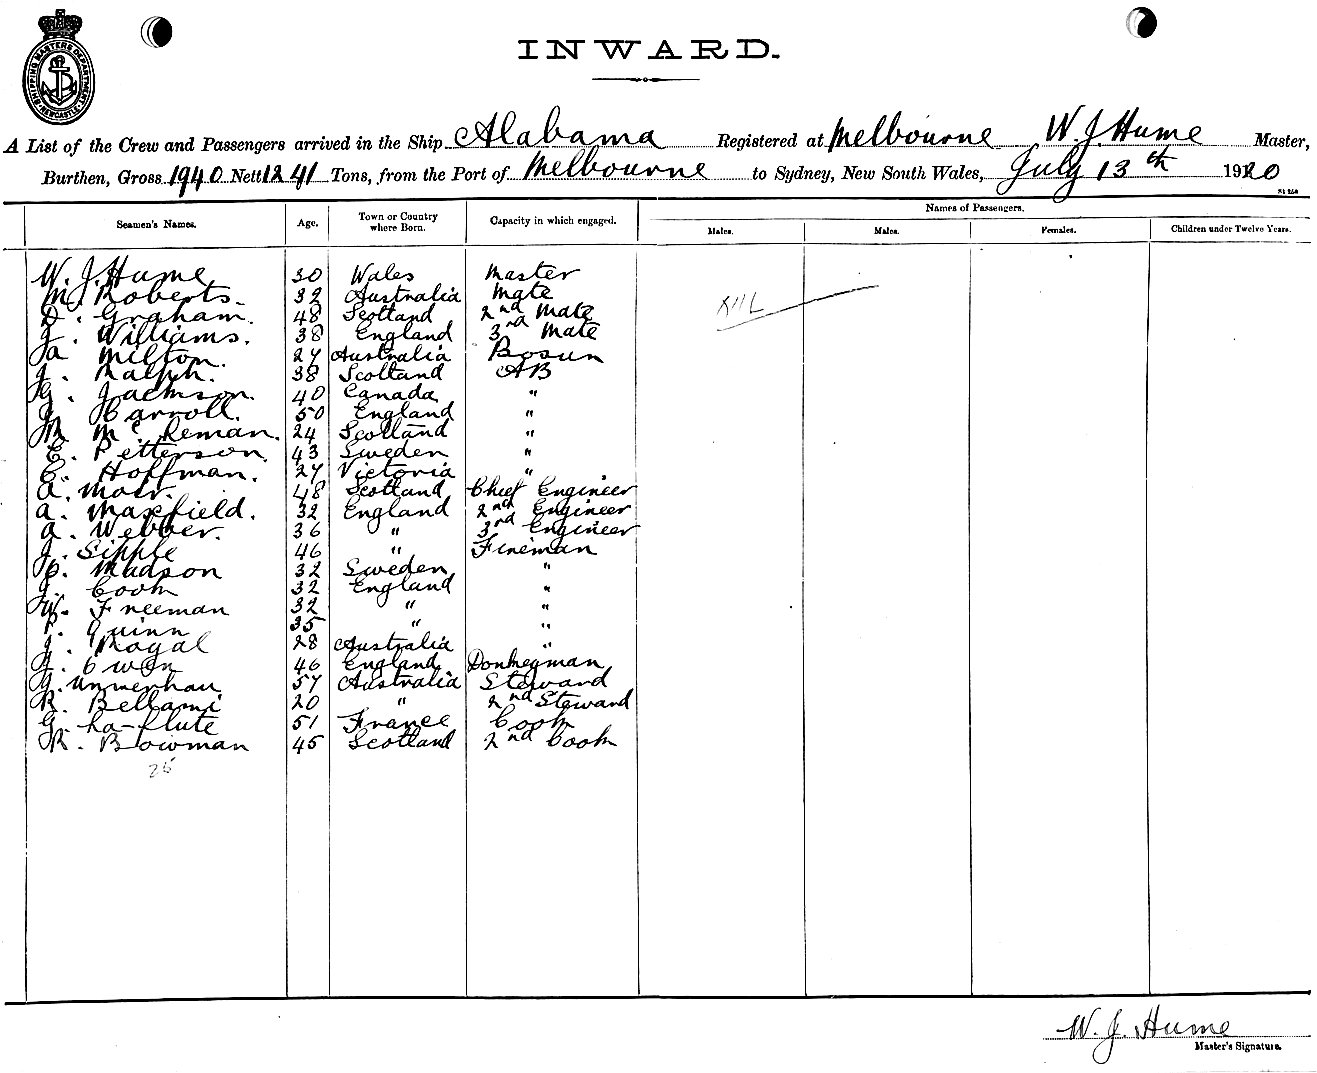 SHIPPING MASTERS DEPARTMENT NEWCASTLE
INWARD.
A List of the Crew and Passengers arrived in the Ship Alabama Registered at Melbourne W. J. Hume Master,
Burthen, Gross 1940 Nett 1241 Tons, from the Port of Melbourne to Sydney, New South Wales, July 13th 1920
Seamen's Names. Age. Town or Country where Born. Capacity in which engaged. Names of Passengers.
Males. Males. Females. Children under Twelve Years.
W. J. Hume 30 Wales Master
M. Roberts. 32 Australia Mate Nil
D. Graham. 48 Scotland 2nd Mate
J. Williams. 38 England 3rd Mate
A Milton. 27 Australia Bosun
J. Ralph. 38 Scotland AB
G. Jackson. 40 Canada "
J. Carroll. 50 England "
M McLeman. 24 Scotland "
E. Petterson. 43 Sweden "
C. Hoffman. 27 Victoria "
A. Moir. 48 Scotland Chief Engineer
A. Maxfield. 32 England 2nd Engineer
A. Webber. 36 " 3rd Engineer
J. Sipple 46 " Fireman
P. Madson 32 Sweden "
J. Cook 32 England "
W. Freeman 32 " "
P. Quinn 35 " "
J. Royal 28 Australia "
H. Owen 46 England Donkeyman
57 Australia Steward
R. Bellami 20 " 2nd Steward
G. La-flute 51 France Cook
R. Bowman 45 Scotland 2nd Cook
25
W. J. Hume
Master's Signature.